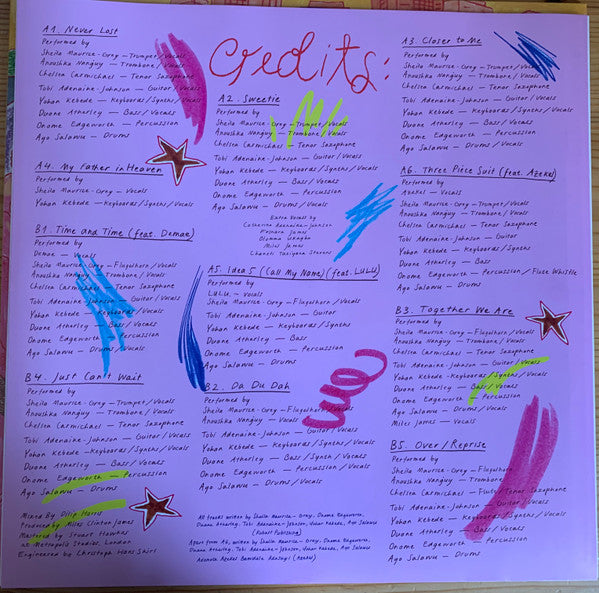 Credits:
A1. Never Lost
Performed by
Sheila Maurice-Grey - Trumpet/Vocals
Anoushka Nanguy - Trombone/Vocals
Chelsea Carmichael - Tenor Saxophone
Tobi Adenaine-Johnson - Guitar/Vocals
Yohan Kebede - Keyboards/Synths/Vocals
Duane Atherley - Bass/Vocals
Onome Edgeworth - Percussion
Ayo Salawu - Drums
A4. My Father in Heaven
Performed by
Sheila Maurice-Grey - Vocals
Yohan Kebede - Keyboards/Synths/Vocals
B1. Time and Time (feat. Demae)
Performed by
Demae - Vocals
Sheila Maurice-Grey - Flugelhorn/Vocals
Anoushka Nanguy - Trombone/Vocals
Chelsea Carmichael - Tenor Saxophone
Tobi Adenaine-Johnson - Guitar/Vocals
Yohan Kebede - Keyboards/Synths
Duane Atherley - Bass/Vocals
Onome Edgeworth - Percussion
Ayo Salawu - Drums
B4. Just Can't Wait
Performed by
Sheila Maurice-Grey - Flugelhorn/Vocals
Anoushka Nanguy - Trombone/Vocals
Chelsea Carmichael - Tenor Saxophone
Tobi Adenaine-Johnson - Guitar/Vocals
Yohan Kebede - Keyboards/Synths/Vocals
Duane Atherley - Bass/Vocals
Onome Edgeworth - Percussion
Ayo Salawu - Drums
Mixed By Dilip Harris
Produced by Miles Clinton James
Mastered by Stuart Hawkes
at Metropolis Studios, London
Engineered by Christoph
A2. Sweetie
Performed by
Sheila Maurice-Grey - Trumpet/Vocals
Anoushka Nanguy - Trombone/Vocals
Chelsea Carmichael - Tenor Saxophone
Tobi Adenaine-Johnson - Guitar/Vocals
Yohan Kebede - Keyboards/Synths/Vocals
Duane Atherley - Bass/Vocals
Onome Edgeworth - Percussion
Ayo Salawu - Drums
Extra Vocals by
Catherine Adenaine-Johnson
James
Miles James
Stevens
A5. Idea 5 (Call My Name)(feat. LULU.)
Performed by
LULU. - Vocals
Sheila Maurice-Grey - Flugelhorn/Vocals
Anoushka Nanguy - Trombone/Vocals
Tobi Adenaine-Johnson - Guitar/Vocals
Yohan Kebede - Keyboards/Synths
Duane Atherley - Bass/Vocals
Onome Edgeworth - Percussion
Ayo Salawu - Drums
B2. Da Du Dah
Performed by
Sheila Maurice-Grey - Flugelhorn/Vocals
Anoushka Nanguy - Vocals
Tobi Adenaine-Johnson - Guitar/Vocals
Yohan Kebede - Keyboards/Synths/Vocals
Duane Atherley - Bass/Vocals
Onome Edgeworth - Percussion
Ayo Salawu - Drums
All tracks written by Sheila Maurice-Grey, Onome Edgeworth,
Duane Atherley, Tobi Adenaine-Johnson, Yohan Kebede, Ayo Salawu
Publishing)
Apart from A6, written by Sheila Maurice-Grey, Onome Edgeworth,
Duane Atherley, Tobi Adenaine-Johnson, Yohan Kebede, Ayo Salawu
A3. Closer to Me
Performed by
Sheila Maurice-Grey - Trumpet/Vocals
Anoushka Nanguy - Trombone/Vocals
Chelsea Carmichael - Tenor Saxophone
Tobi Adenaine-Johnson - Guitar/Vocals
Yohan Kebede - Keyboards/Synths/Vocals
Duane Atherley - Bass/Vocals
Onome Edgeworth - Percussion
Ayo Salawu - Drums
A6. Three Piece Suit (feat. Azekel)
Performed by
Azekel - Vocals
Sheila Maurice-Grey - Trumpet/Vocals
Anoushka Nanguy - Trombone/Vocals
Chelsea Carmichael - Tenor Saxophone
Tobi Adenaine-Johnson - Guitar
Yohan Kebede - Keyboards/Synths/Vocals
Duane Atherley - Bass/Vocals
Onome Edgeworth - Percussion/Flute Whistle
Ayo Salawu - Drums
B3. Together We Are
Performed by
Sheila Maurice-Grey - Flugelhorn/Vocals
Anoushka Nanguy - Trombone/Vocals
Chelsea Carmichael - Tenor Saxophone
Tobi Adenaine-Johnson - Guitar/Vocals
Yohan Kebede - Keyboards/Synths/Vocals
Duane Atherley - Bass/Vocals
Onome Edgeworth - Percussion
Ayo Salawu - Drums/Vocals
Miles James - Vocals
B5. Over/Reprise
Performed by
Sheila Maurice-Grey - Flugelhorn
Anoushka Nanguy - Trombone/Vocals
Chelsea Carmichael - Flute/Tenor Saxophone
Tobi Adenaine-Johnson - Guitar/Vocals
Yohan Kebede - Keyboards/Synths/Vocals
Duane Atherley - Bass/Vocals
Onome Edgeworth - Percussion
Ayo Salawu - Drums